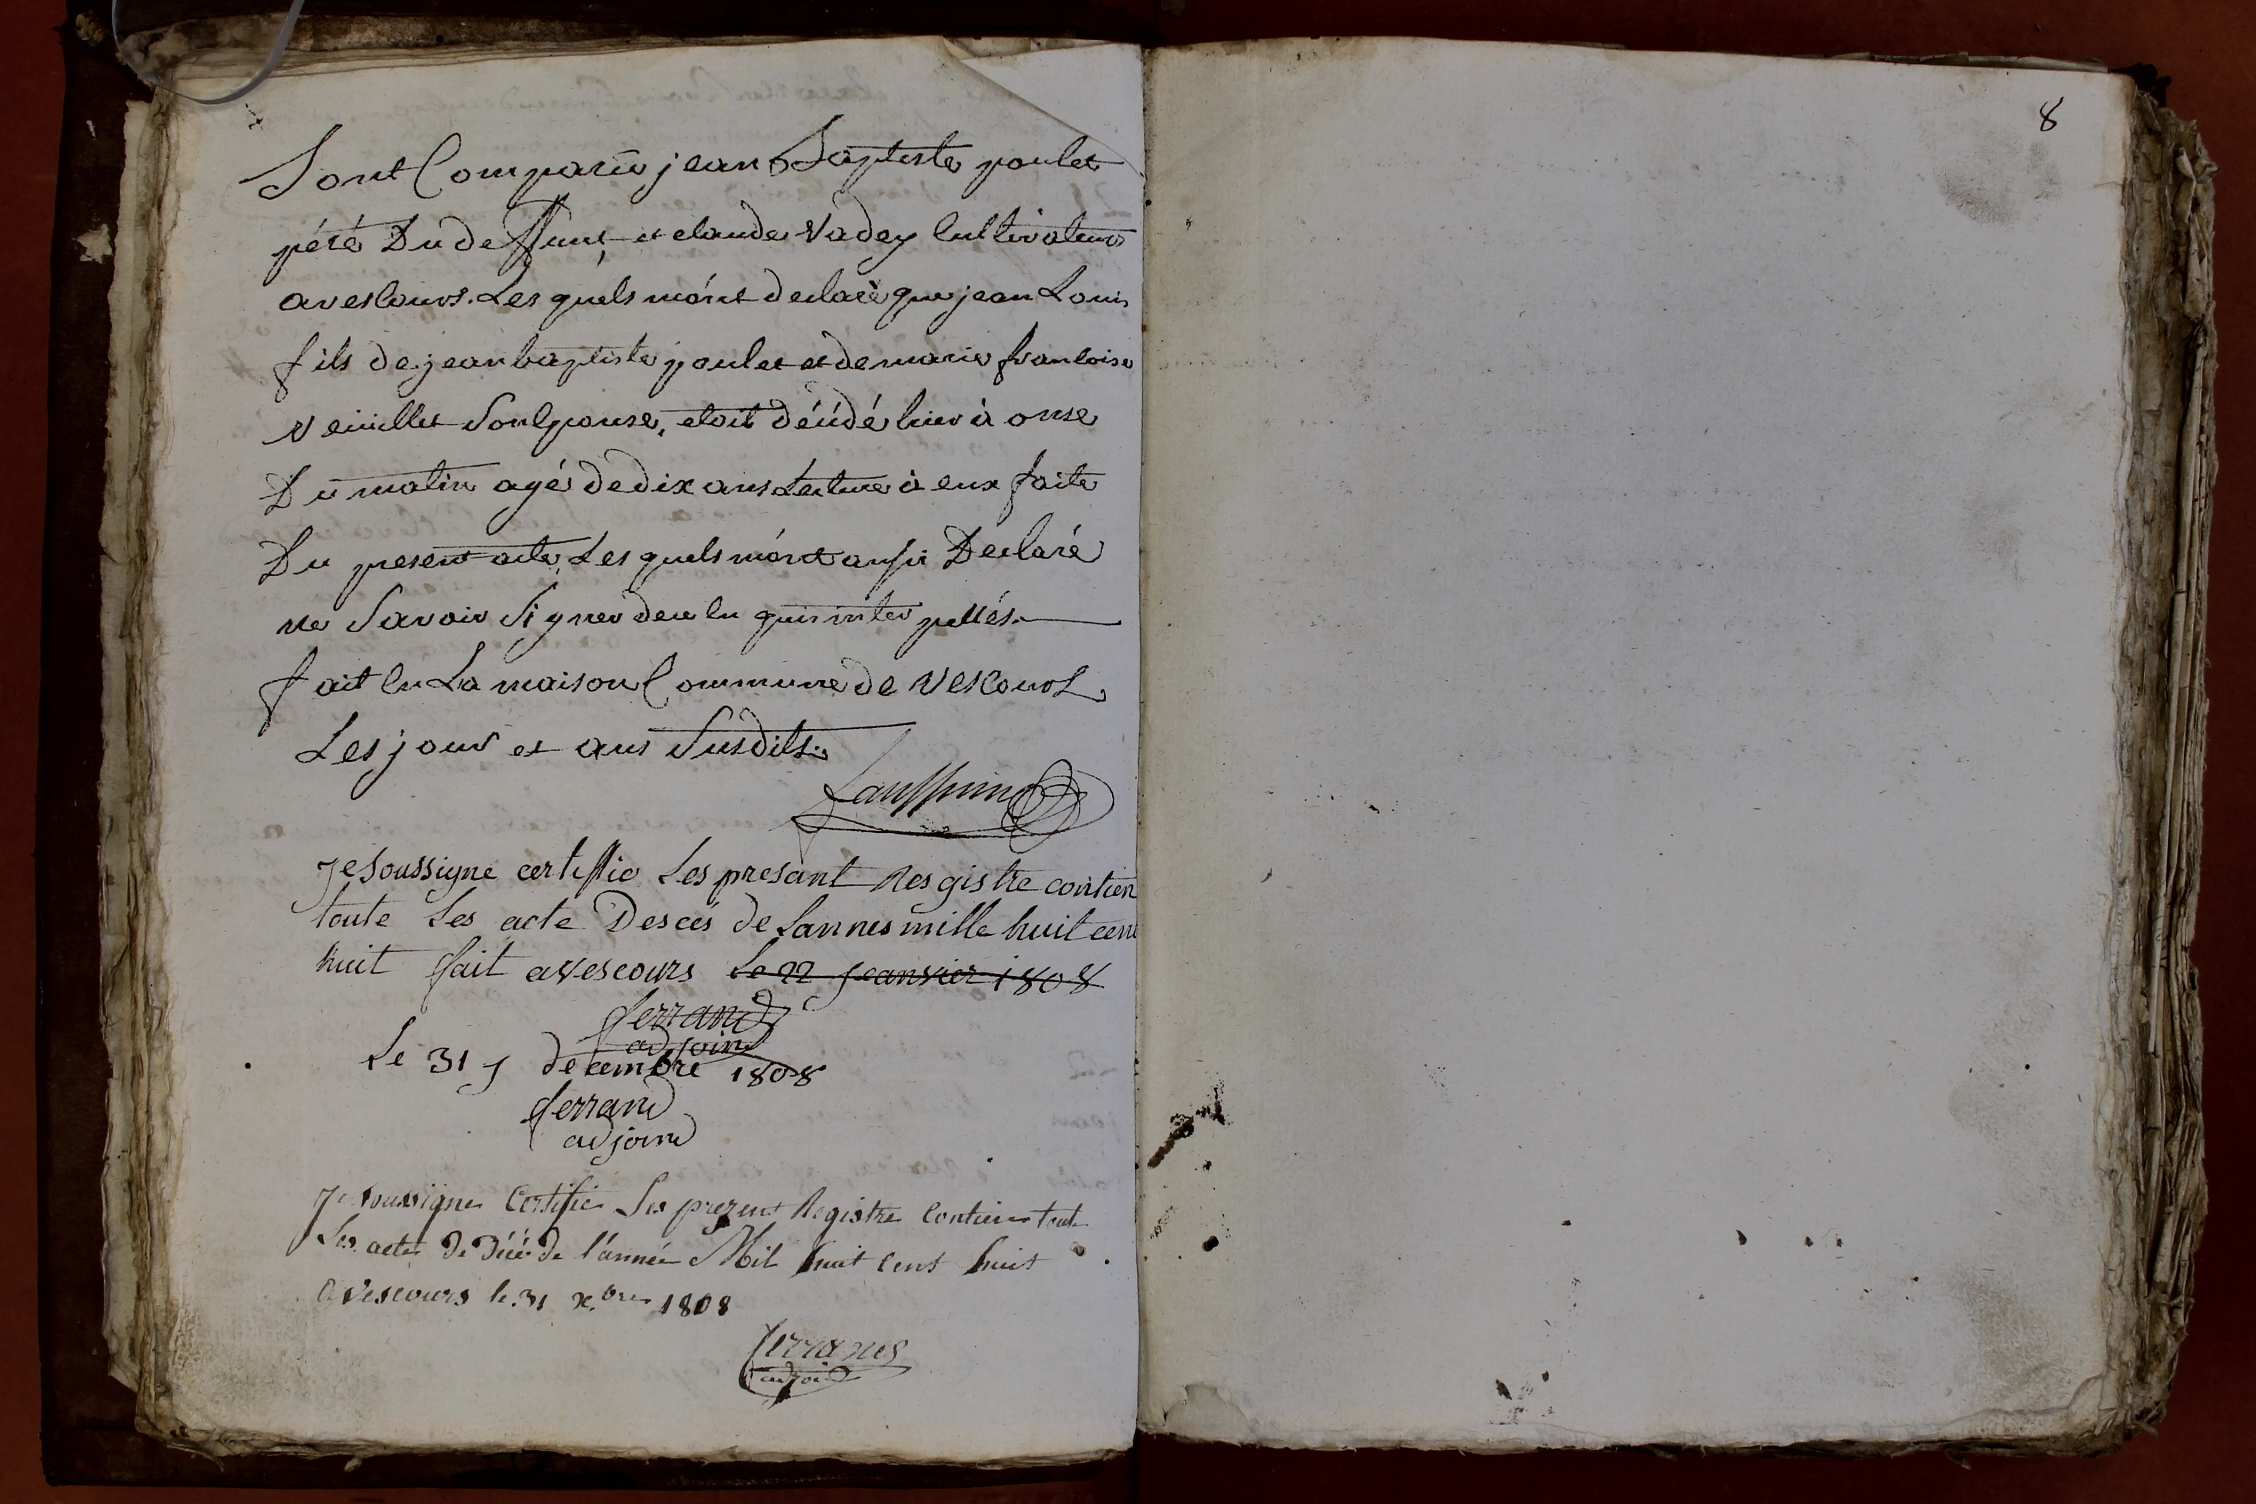 Sont Comparu jean Baptiste poulet
pére Du deffunt et claude Vadey Cultivateurs
a vescours. Les quels m'ont declaré que jean Louis
fils de jean baptiste poulet et de marie francoise
Veuillet Son Epouse, etoit décédé hier à onse
Du matin agé de dix ans Lecture à eux faite
Du present acte, Les quels m'ont aussi Declaré
ne Savoir Signer de ce En quis inter pellés.
fait En La maison Commune de Vescours
Les jour et ans Susdits.
Je soussigne certiffie Les presant Resgistre contien
toute Les acte Desces de Lannes mille huit cent
huit fait a vescours Le 22 jeanvier 1808
ferrand
adjoind
Le 31 j decembre 1808
ferrand
adjoind
Je soussignes Certifie Les prezent Registre Contien toute
Les actes De Décé de l'année Mil huit Cent huit
a Vescours le 31 x.bre 1808
ferrand
adjoind
8